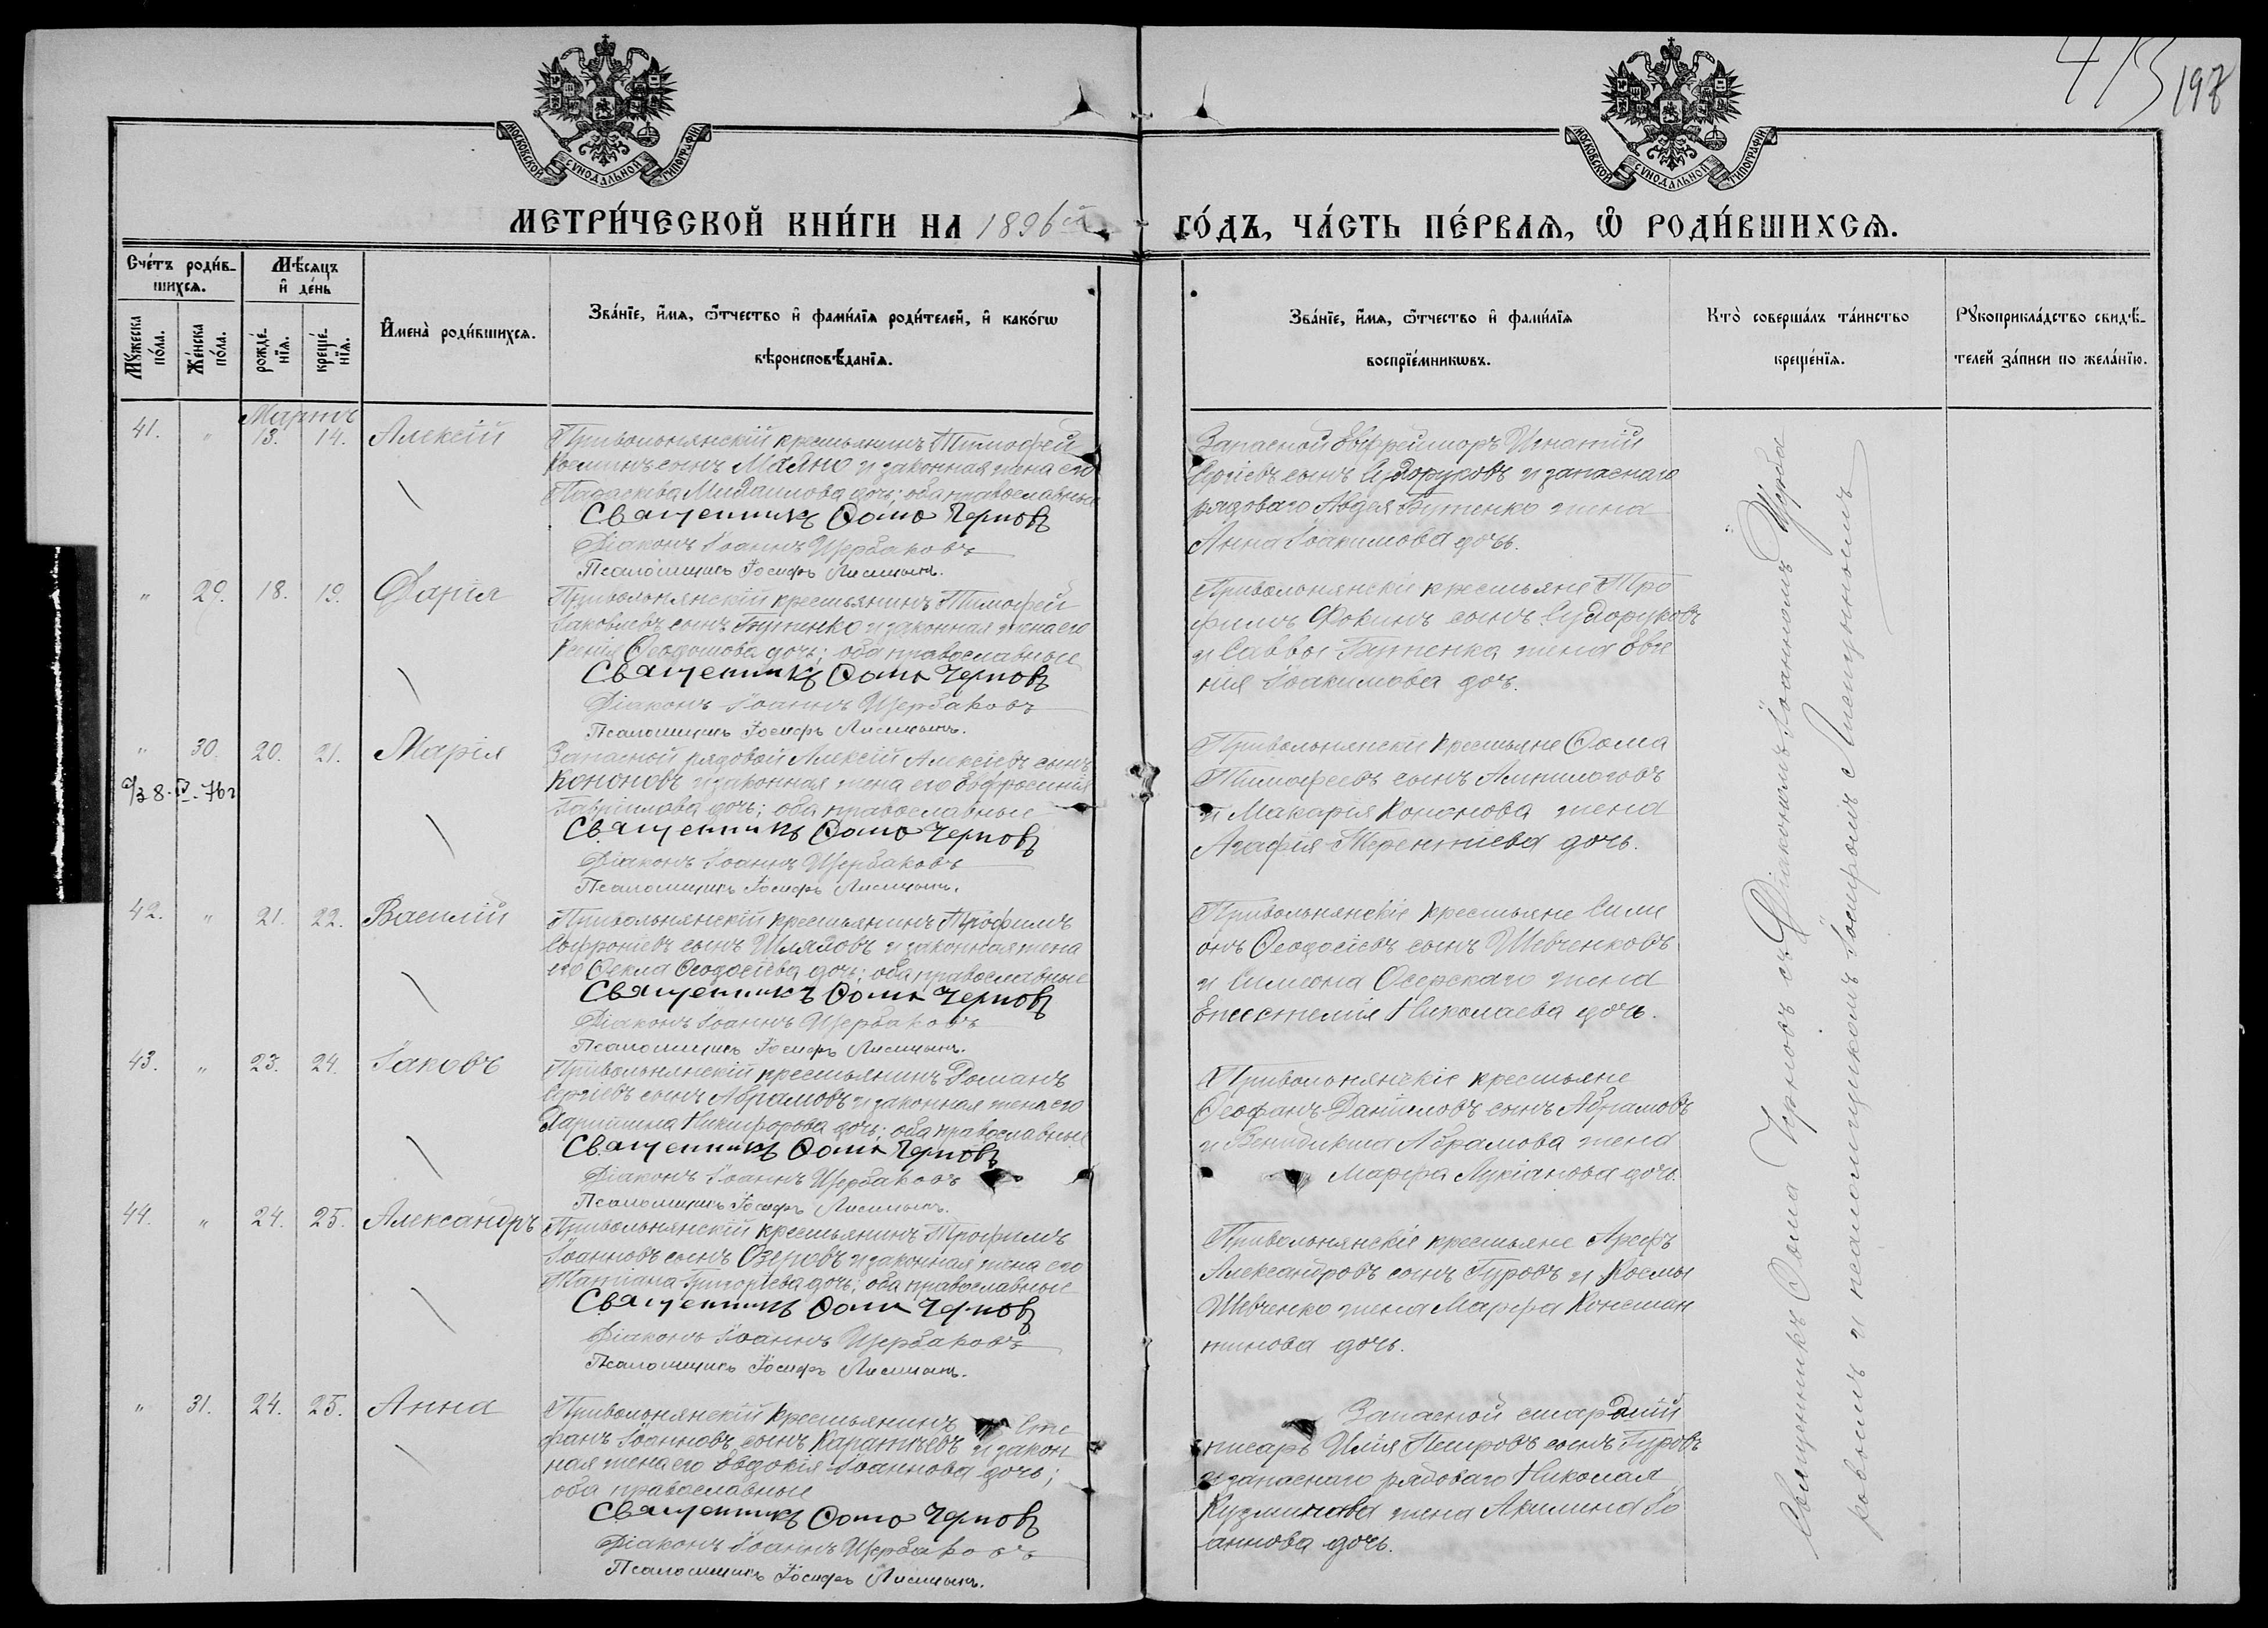 413
197
МОСКОВСКОЙ СѴНОДАЛЬНОЙ ТИПОГРАФІИ
МОСКОВСКОЙ СѴНОДАЛЬНОЙ ТИПОГРАФІИ
МЕТРИ́ЧЕСКОЙ КНИ́ГИ НА 1896й ГО́ДЪ, ЧА́СТЬ ПЕ́РВАѦ, Ѡ҆ РОДИ́ВШИХСѦ.
Сче́тъ роди́в-
шихсѧ.
Мꙋ́жеска
по́ла.
Же́нска
по́ла.
Мѣ́сѧцъ
и҆ де́нь
рожде́-
нїѧ.
креще́-
нїѧ.
И҆мена̀ роди́вшихсѧ.
Зва́нїе, и҆́мѧ, ѻ҆́тчество и҆ фами́лїѧ роди́телей, и҆ како́гѡ
вѣроисповѣ́данїѧ.
Зва́нїе, и҆́мѧ, ѻ҆́тчество и҆ фами́лїѧ
воспрїе́мникѡвъ.
Кто̀ соверша́лъ та́инство
креще́нїѧ.
Рꙋкоприкла́дство свидѣ́-
телей за́писи по жела́нїю.
Мартъ
41. " 13. 14. Алексій
Привольнянскій крестьянинъ Тимофей
Косминъ сынъ Маяно и законная жена его
Параскева Михаилова дочь; оба православные
Священникъ Ѳома Черновъ
Діаконъ Іоаннъ Щербаковъ
Псаломщикъ Іосифъ Лисицынъ.
Запасной Ефрейторъ Игнатій
Сергіевъ сынъ Сидоруковъ и запаснаго
рядоваго Авдея Бутенко жена
Анна Іоакимова дочь.
" 29. 18. 19. Дарія
Привольнянскій крестьянинъ Тимофей
Іаковлевъ сынъ Бутенко и законная жена его
Ксенія дочь; оба православные
Священникъ Ѳома Черновъ
Діаконъ Іоаннъ Щербаковъ
Псаломщикъ Іосифъ Лисицынъ.
Привольнянскіе крестьяне Тро
фимъ Фокинъ сынъ Сидоруковъ
и Саввы жена Евге
нія Іоакимова дочь.
" 30. 20. 21. Марія
8-IV-76г
Запасной рядовой Алексій Алексіевъ сынъ
Кононовъ и законная жена его Евфросинія
Гавріилова дочь; оба православные
Священникъ Ѳома Черновъ
Діаконъ Іоаннъ Щербаковъ
Псаломщикъ Іосифъ Лисицынъ.
Привольнянскіе крестьяне Ѳома
Тимофеевъ сынъ
и Макарія Кононова жена
Агафія Терентіева дочь.
42. " 21. 22. Василій
Привольнянскій крестьянинъ Трофимъ
Софроніевъ сынъ Шляховъ и законная жена
его Ѳекла Ѳеодосіева дочь; оба православные
Священникъ Ѳома Черновъ
Діаконъ Іоаннъ Щербаковъ
Псаломщикъ Іосифъ Лисицынъ.
Привольнянскіе крестьяне Симе
онъ Ѳеодосіевъ сынъ Шевченковъ
и Симеона Осерскаго жена
Епистилія Николаева дочь.
43. " 23. 24. Іаковъ
Привольнянскій крестьянинъ Доманъ
Сергіевъ сынъ Абрамовъ и законная жена его
Никифорова дочь; оба православные
Священникъ Ѳома Черновъ
Діаконъ Іоаннъ Щербаковъ
Псаломщикъ Іосифъ Лисицынъ.
Привольнянскіе крестьяне
Ѳеофанъ Даніиловъ сынъ Абрамовъ
и Венидикта Абрамова жена
Марфа Лукіанова дочь.
44. " 24. 25. Александръ
Привольнянскій крестьянинъ Трофимъ
Іоанновъ сынъ Озеровъ и законная жена его
Татіана Григоріева дочь; оба православные
Священникъ Ѳома Черновъ
Діаконъ Іоаннъ Щербаковъ
Псаломщикъ Іосифъ Лисицынъ.
Привольнянскіе крестьяне Арефъ
Александровъ сынъ Гуровъ и Космы
Шевченко жена Марфа Констан
тинова дочь.
" 31. 24. 25. Анна
Привольнянскій крестьянинъ Сте
фанъ Іоанновъ сынъ Каратчевъ и закон
ная жена его Евдокія Іоаннова дочь;
оба православные
Священникъ Ѳома Черновъ
Діаконъ Іоаннъ Щербаковъ
Псаломщикъ Іосифъ Лисицынъ.
Запасной старшій
писарь Илія Петровъ сынъ Гуровъ
и запаснаго рядоваго Николая
Кузминова жена Акилина Іо
аннова дочь.
Священникъ Ѳома Черновъ съ Діакономъ Іоанномъ Щерба
ковымъ и псаломщикомъ Іосифомъ Лисицыномъ